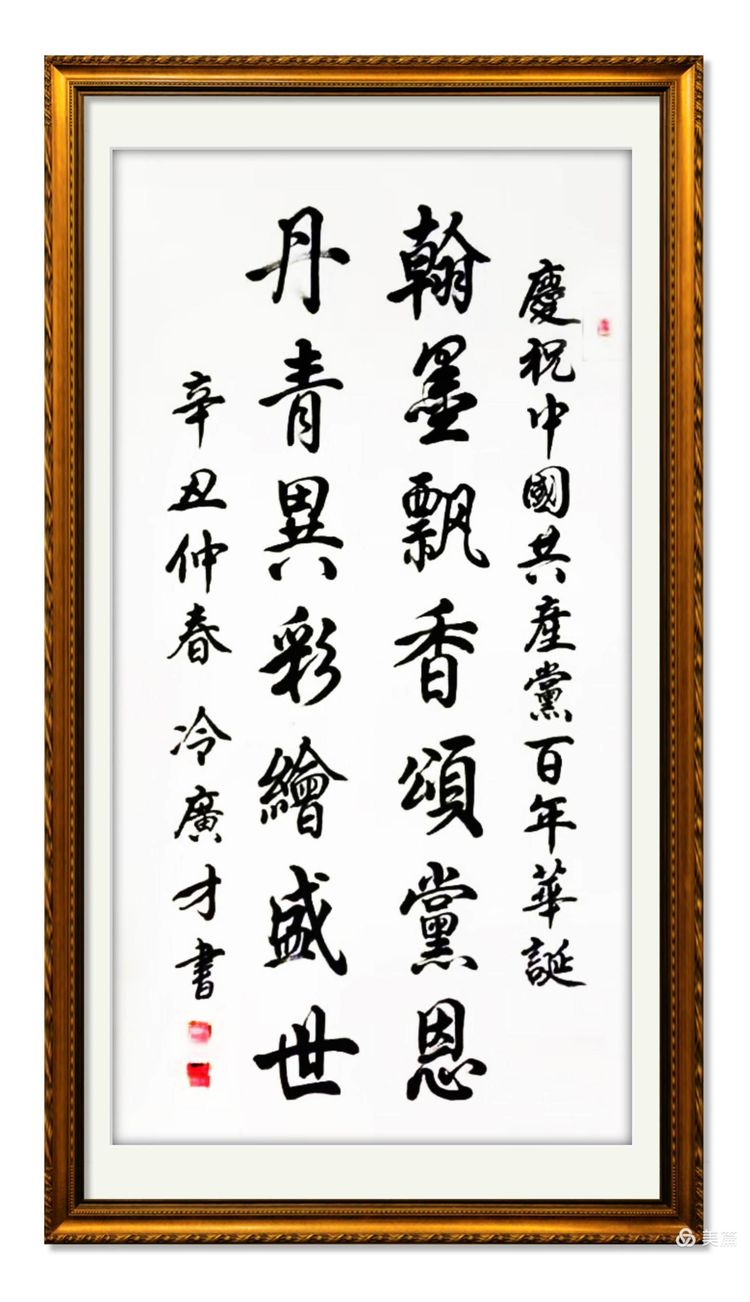 慶祝中國共產黨百年華誕
翰墨飄香頌黨恩
丹青異彩繪盛世
辛丑仲春 冷廣才書
美篇